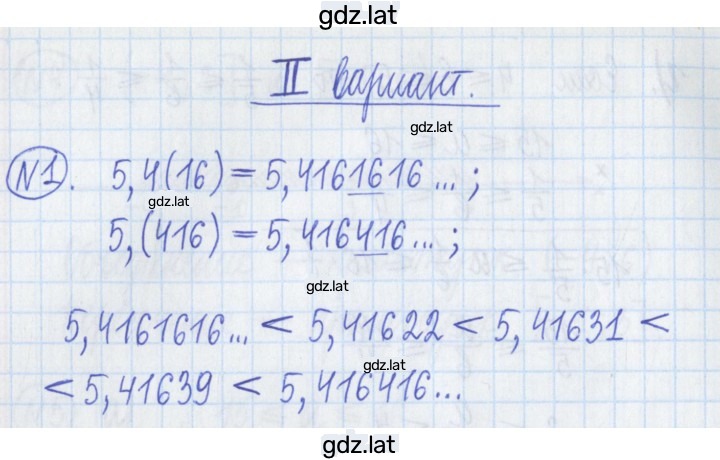 gdz.lat
II вариант.
gdz.lat
№1. 5,4(16) = 5,4161616...;
gdz.lat
5,(416) = 5,416416...;
gdz.lat
5,4161616... < 5,41622 < 5,41631 <
gdz.lat
< 5,41639 < 5,416416...
gdz.lat